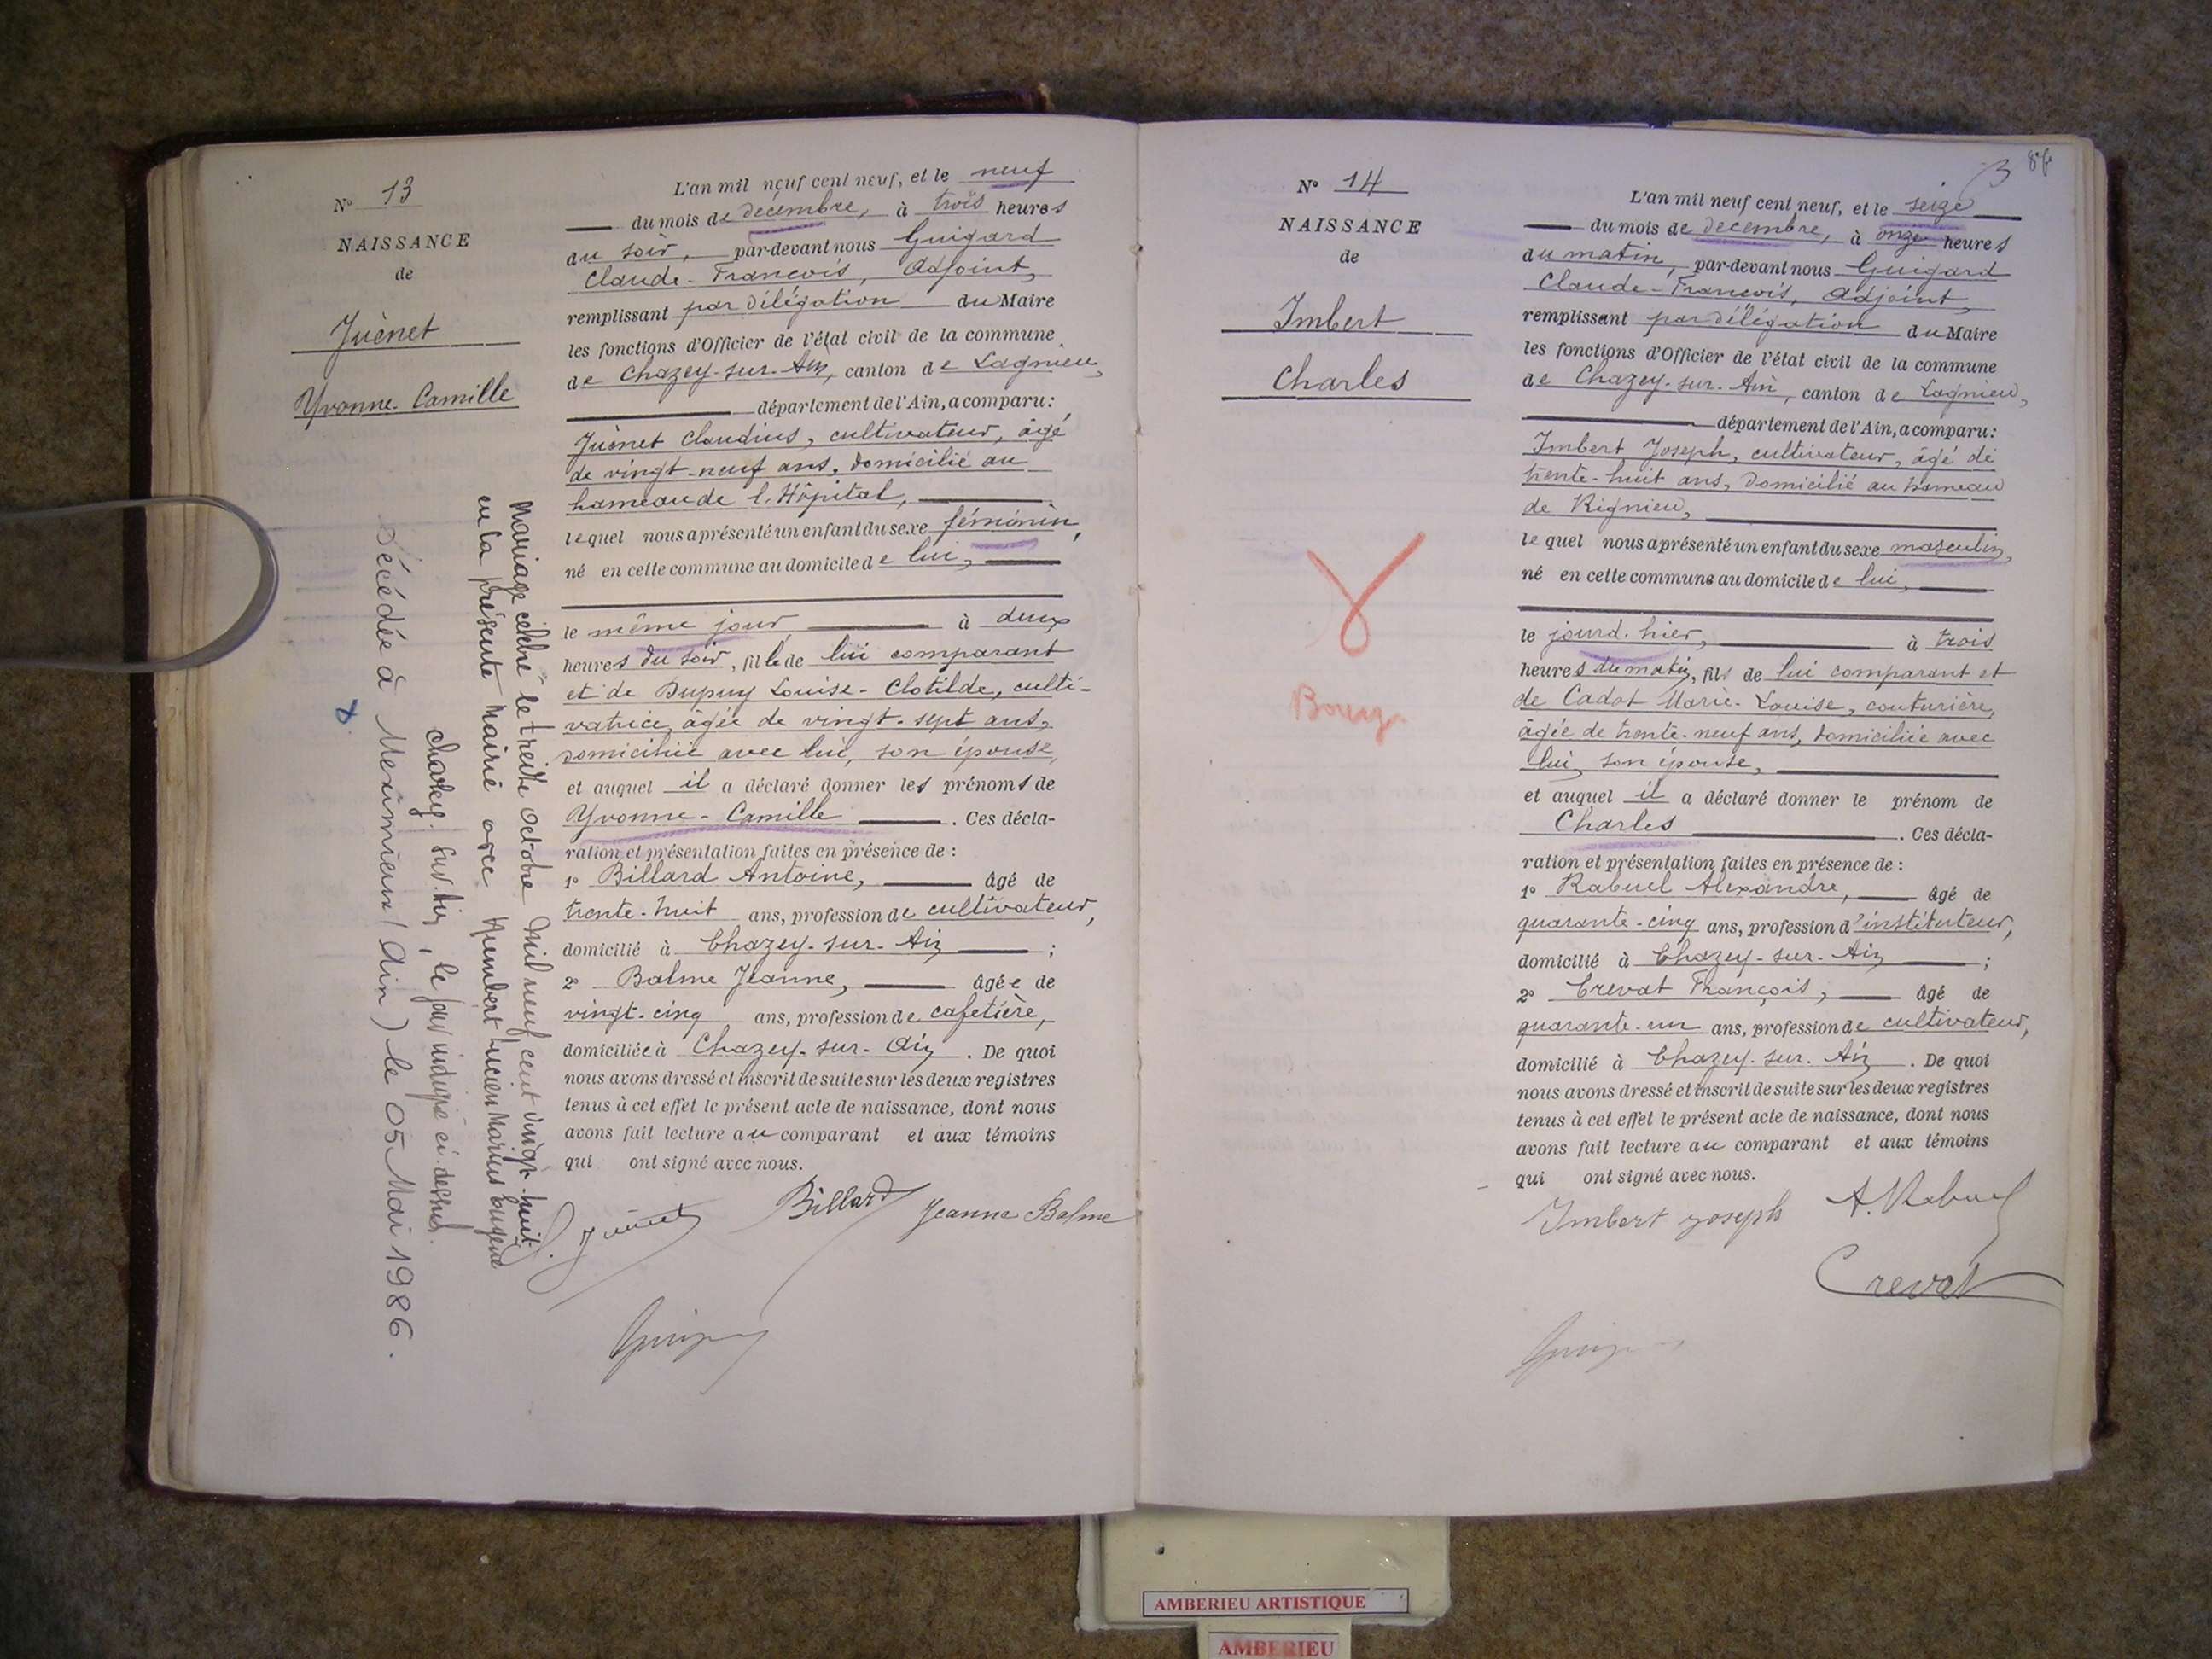 N° 13
NAISSANCE
de
Juénet
Yvonne-Camille
L'an mil neuf cent neuf, et le neuf
du mois de décembre, à trois heures
du soir, par-devant nous Guigard
Claude-François, Adjoint,
remplissant par délégation du Maire
les fonctions d'Officier de l'état civil de la commune
de Chazey-sur-Ain, canton de Lagnieu,
département de l'Ain, a comparu:
Juénet Claudius, cultivateur, âgé
de vingt-neuf ans, domicilié au
hameau de l'Hôpital,
lequel nous a présenté un enfant du sexe féminin,
né en cette commune au domicile de lui,
le même jour à deux
heures du soir, fille de lui comparant
et de Dupuy Louise-Clotilde, culti-
vatrice, âgée de vingt-sept ans,
domiciliée avec lui, son épouse,
et auquel il a déclaré donner les prénoms de
Yvonne-Camille. Ces décla-
ration et présentation faites en présence de:
1° Billard Antoine, âgé de
trente-huit ans, profession de cultivateur,
domicilié à Chazey-sur-Ain;
2° Balme Jeanne, âgée de
vingt-cinq ans, profession de cafetière,
domiciliée à Chazey-sur-Ain. De quoi
nous avons dressé et inscrit de suite sur les deux registres
tenus à cet effet le présent acte de naissance, dont nous
avons fait lecture au comparant et aux témoins
qui ont signé avec nous.
Juénet Billard Jeanne Balme
Mariage célébré le treize octobre mil neuf cent vingt-huit
en la présente Mairie avec Humbert Lucien Marius Eugène
Chazey-sur-Ain, le jour indiqué ci-dessus.
Décédée à Meximieux (Ain) le 05 Mai 1986.
86
N° 14
NAISSANCE
de
Imbert
Charles
Bourg
L'an mil neuf cent neuf, et le seize
du mois de décembre, à onze heures
du matin, par-devant nous Guigard
Claude-François, Adjoint,
remplissant par délégation du Maire
les fonctions d'Officier de l'état civil de la commune
de Chazey-sur-Ain, canton de Lagnieu,
département de l'Ain, a comparu:
Imbert Joseph, cultivateur, âgé de
trente-huit ans, domicilié au hameau
de Rignieu,
lequel nous a présenté un enfant du sexe masculin,
né en cette commune au domicile de lui,
le jourd'hier, à trois
heures du matin, fils de lui comparant et
de Cadot Marie-Louise, couturière,
âgée de trente-neuf ans, domiciliée avec
lui, son épouse,
et auquel il a déclaré donner le prénom de
Charles. Ces décla-
ration et présentation faites en présence de:
1° Rabuel Alexandre, âgé de
quarante-cinq ans, profession d'instituteur,
domicilié à Chazey-sur-Ain;
2° Crevat François, âgé de
quarante-un ans, profession de cultivateur,
domicilié à Chazey-sur-Ain. De quoi
nous avons dressé et inscrit de suite sur les deux registres
tenus à cet effet le présent acte de naissance, dont nous
avons fait lecture au comparant et aux témoins
qui ont signé avec nous.
Imbert Joseph A. Rabuel
Crevat
AMBERIEU ARTISTIQUE
AMBERIEU